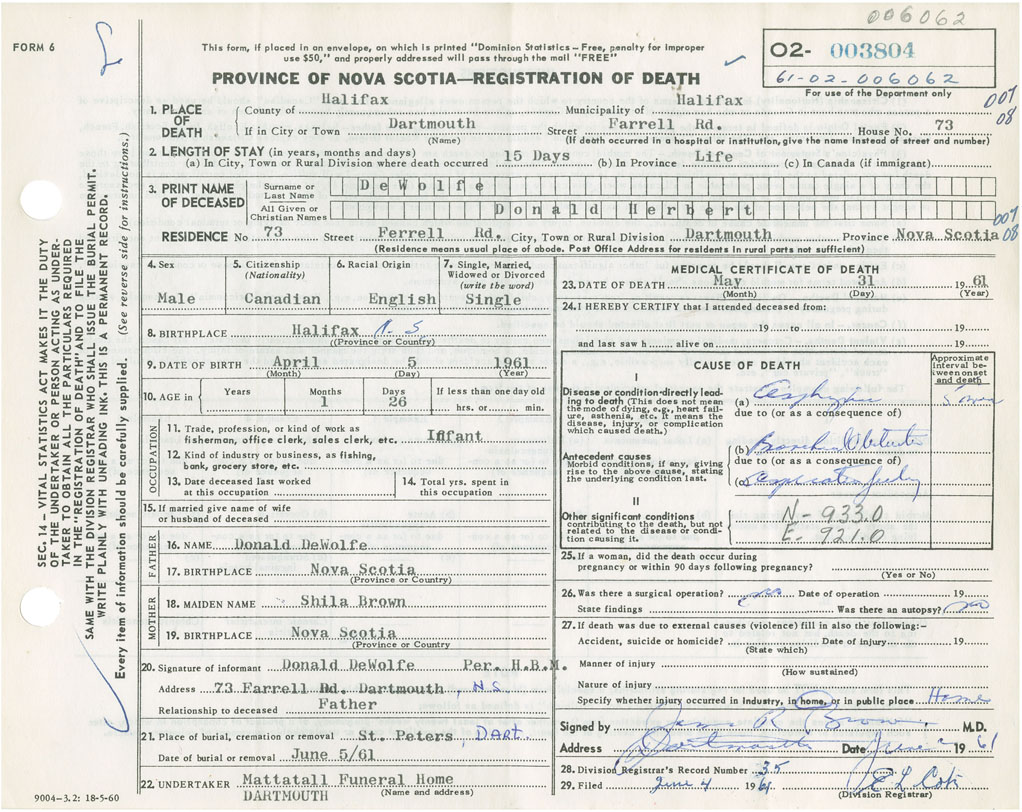 006062
FORM 6
This form, if placed in an envelope, on which is printed "Dominion Statistics – Free, penalty for improper
use $50," and properly addressed will pass through the mail "FREE"
02- 003804
61-02-006062
For use of the Department only
PROVINCE OF NOVA SCOTIA—REGISTRATION OF DEATH
007
08
1. PLACE OF DEATH
County of Halifax Municipality of Halifax
If in City or Town Dartmouth Street Farrell Rd. House No. 73
(Name) (If death occurred in a hospital or institution, give the name instead of street and number)
2. LENGTH OF STAY (in years, months and days)
(a) In City, Town or Rural Division where death occurred 15 Days (b) In Province Life (c) In Canada (if immigrant)
3. PRINT NAME OF DECEASED
Surname or Last Name DeWolfe
All Given or Christian Names Donald Herbert
007
08
RESIDENCE No 73 Street Ferrell Rd. City, Town or Rural Division Dartmouth Province Nova Scotia
(Residence means usual place of abode. Post Office Address for residents in rural parts not sufficient)
4. Sex
Male
5. Citizenship (Nationality)
Canadian
6. Racial Origin
English
7. Single, Married, Widowed or Divorced (write the word)
Single
8. BIRTHPLACE Halifax N.S
(Province or Country)
9. DATE OF BIRTH April 5 1961
(Month) (Day) (Year)
10. AGE in Years Months Days If less than one day old
1 26 hrs. or min.
OCCUPATION
11. Trade, profession, or kind of work as
fisherman, office clerk, sales clerk, etc. Infant
12. Kind of industry or business, as fishing,
bank, grocery store, etc.
13. Date deceased last worked
at this occupation
14. Total yrs. spent in
this occupation
15. If married give name of wife
or husband of deceased
FATHER
16. NAME Donald DeWolfe
17. BIRTHPLACE Nova Scotia
(Province or Country)
MOTHER
18. MAIDEN NAME Shila Brown
19. BIRTHPLACE Nova Scotia
(Province or Country)
20. Signature of informant Donald DeWolfe Per. H.B.M.
Address 73 Farrell Rd. Dartmouth, N.S.
Relationship to deceased Father
21. Place of burial, cremation or removal St. Peters, DART.
Date of burial or removal June 5/61
22. UNDERTAKER Mattatall Funeral Home
DARTMOUTH (Name and address)
9004—3.2: 18-5-60
MEDICAL CERTIFICATE OF DEATH
23. DATE OF DEATH May 31 1961
(Month) (Day) (Year)
24. I HEREBY CERTIFY that I attended deceased from:
19 to 19
and last saw h alive on 19
CAUSE OF DEATH
Approximate interval between onset and death
I
Disease or condition directly leading to death (This does not mean the mode of dying, e.g., heart failure, asthenia, etc. It means the disease, injury, or complication which caused death.)
(a) Asphyxia
due to (or as a consequence of)
Antecedent causes
Morbid conditions, if any, giving rise to the above cause, stating the underlying condition last.
(b)
due to (or as a consequence of)
(c)
II
Other significant conditions
contributing to the death, but not related to the disease or condition causing it.
N- 933.0
E- 921.0
25. If a woman, did the death occur during
pregnancy or within 90 days following pregnancy?
(Yes or No)
26. Was there a surgical operation? no Date of operation 19
State findings Was there an autopsy? no
27. If death was due to external causes (violence) fill in also the following:-
Accident, suicide or homicide? Date of injury 19
(State which)
Manner of injury
(How sustained)
Nature of injury
Specify whether injury occurred in industry, in home, or in public place Home
Signed by James R. Brown M.D.
Address Dartmouth Date June 1961
28. Division Registrar's Record Number 35
29. Filed June 4 1961
(Division Registrar)
SEC. 14 – VITAL STATISTICS ACT MAKES IT THE DUTY
OF THE UNDERTAKER OR PERSON ACTING AS UNDER-
TAKER TO OBTAIN ALL THE PARTICULARS REQUIRED
IN THE "REGISTRATION OF DEATH" AND TO FILE THE
SAME WITH THE DIVISION REGISTRAR WHO SHALL ISSUE THE BURIAL PERMIT.
WRITE PLAINLY WITH UNFADING INK. THIS IS A PERMANENT RECORD.
Every item of information should be carefully supplied. (See reverse side for instructions.)